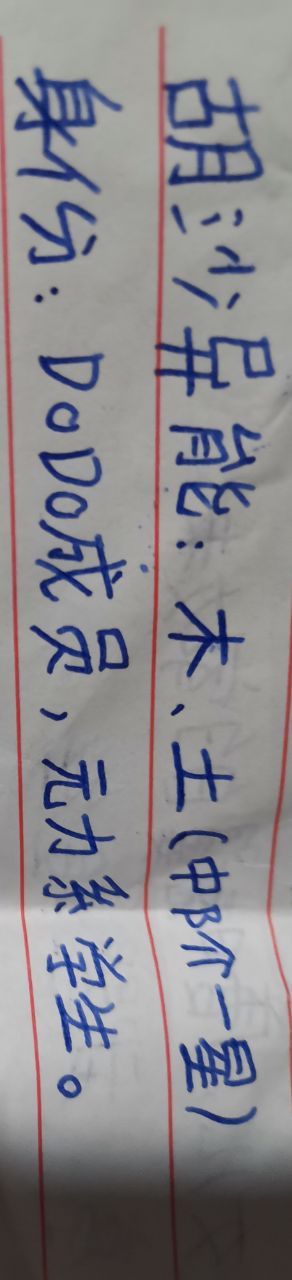 胡沙异能：木、土(中阶一星)
身份：DoDo成员，元力系学生。